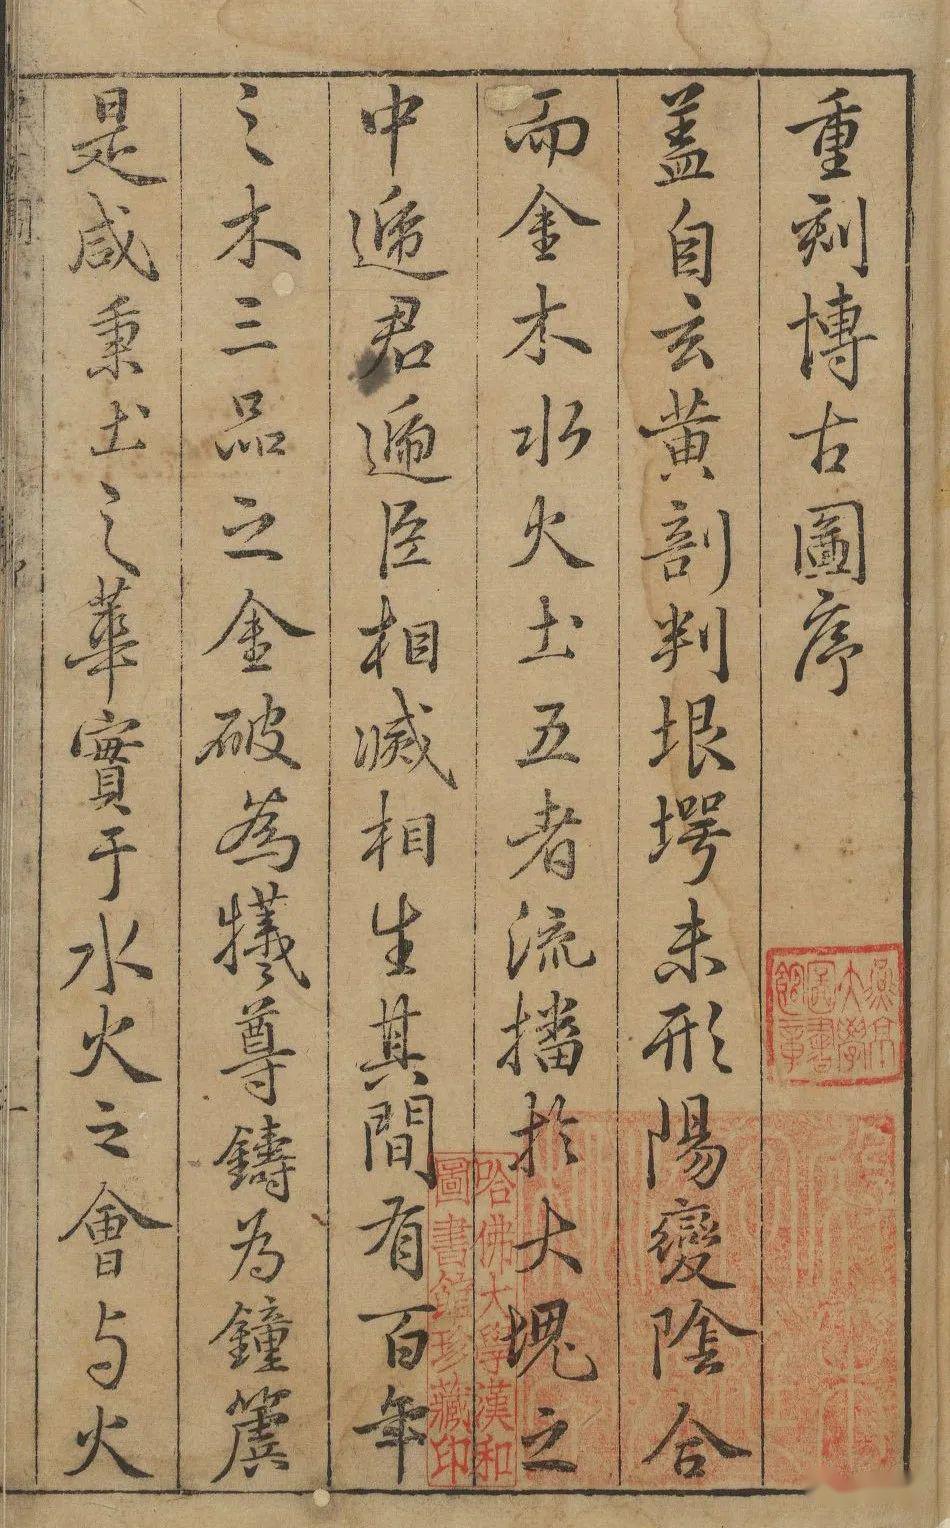 重刻博古圖序
蓋自玄黃剖判垠堮未形陽變陰合
而金木水火土五者流播於大塊之
中遞君遞臣相滅相生其間有百年
之木三品之金破為犧尊鑄為鐘簴
是咸秉土之華實于水火之會与火
燕京大學圖書館章
哈佛大學漢和
圖書館珍藏印